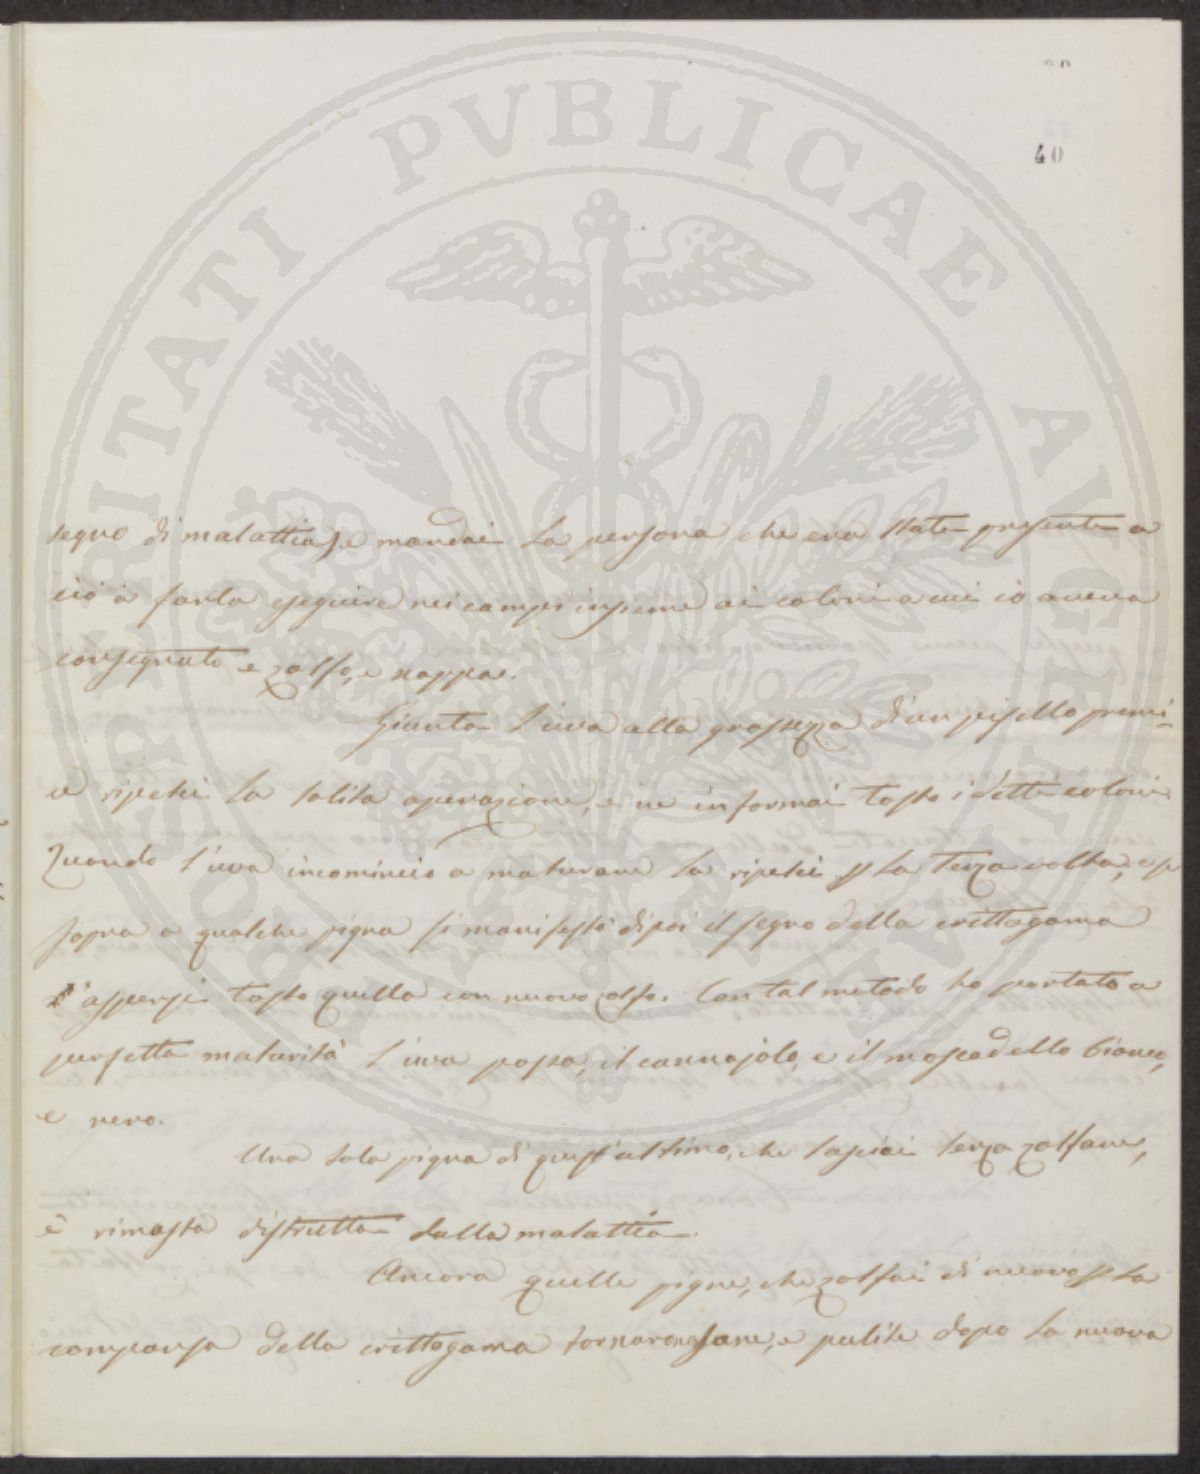 40
segno di malattia) e mandai la persona che era stata presente a
ciò a farla eseguire nei campi insieme ai coloni a cui io aveva
consegnato e zolfo, e zappae.
Giunta l'uva alla grossezza d'un pisello premi-
e ripetei la solita operazione, e ne informai tosto i detti coloni.
Quando l'uva incominciò a maturare la ripetei p la terza volta, e se
sopra a qualche pigna si manifestò dipoi il segno della crittogama
l'aspersi tosto quella con nuovo zolfo. Con tal metodo ho portato a
perfetta maturità l'uva passa, il cannajolo, e il moscadello bianco,
e nero.
Una sola pigna di quest'ultimo, che lasciai senza zolfare,
è rimasta distrutta dalla malattia.
Ancora quelle pigne, che zolfai di nuovo p la
comparsa della crittogama tornarono sane, e pulite dopo la nuova
PROSPERITATI PVBLICAE AVGENDAE